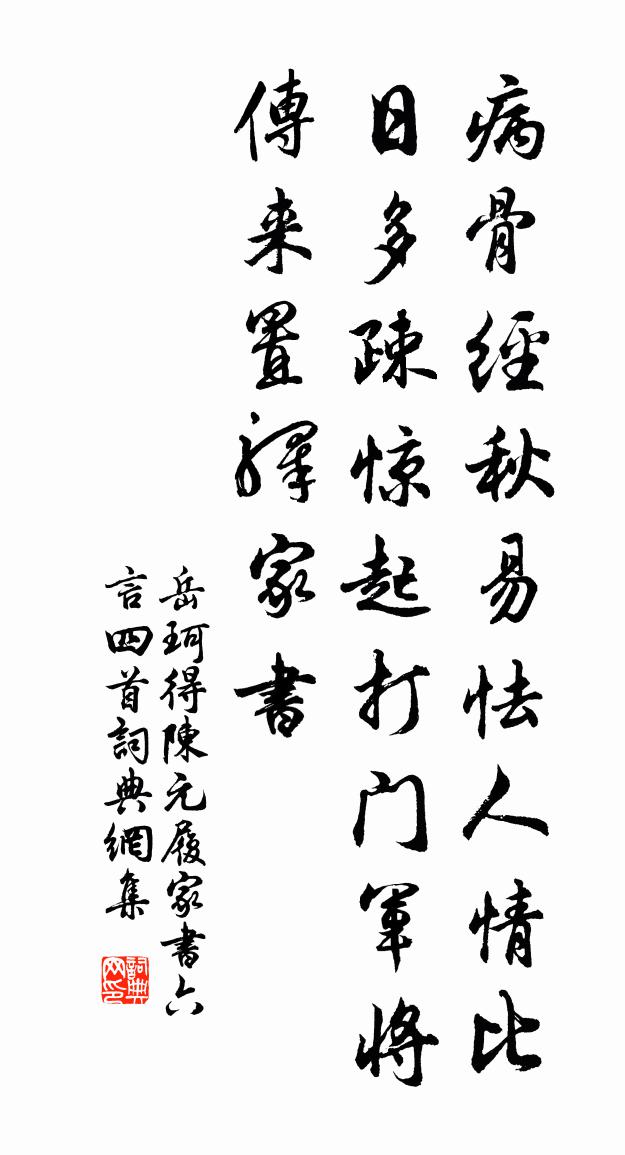 病骨經秋易怯人情比
日多疎惊起打门軍將
傳来置驛家書
岳珂得陳元履家書六
言四首詞典網集
詞典网印